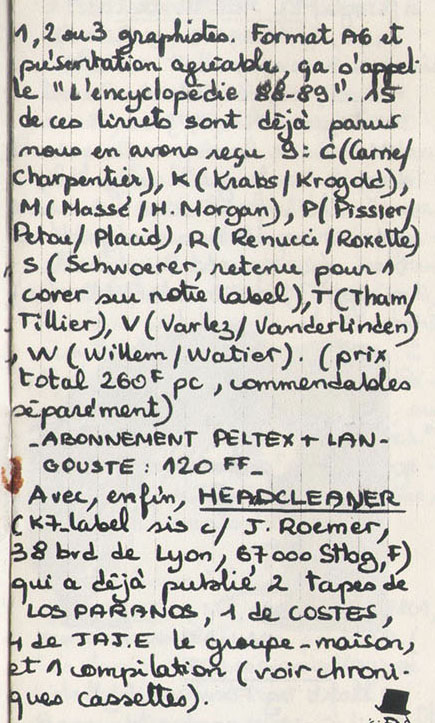 1, 2 ou 3 graphistes. Format A6 et
présentation agréable, ça s'appel-
le "L'encyclopédie 88-89". 15
de ces livrets sont déjà parus
nous en avons reçu 9: C((Carne/
Charpentier), K (Krabs/Krogold),
M (Massé/H. Morgan), P(Pissier/
Petou/Placid), R (Renucci/Roxette)
S (Schwoerer, retenu pour 1
cover sur notre label), T (Tham/
Tillier), V (Varlez/Vanderlinden)
, W (Willem/Watier). (prix
total 260F pc, commendables
séparément)
- ABONNEMENT PELTEX + LAN-
GOUSTE : 120 FF_
Avec, enfin, HEADCLEANER
(K7-label sis c/ J. Roemer,
38 bvd de Lyon, 67000 Stbg, F)
qui a déjà publié 2 tapes de
LOS PARANOS, 1 de COSTES,
4 de JAJ.E le groupe-maison,
et 1 compilation (voir chroni-
ques cassettes).